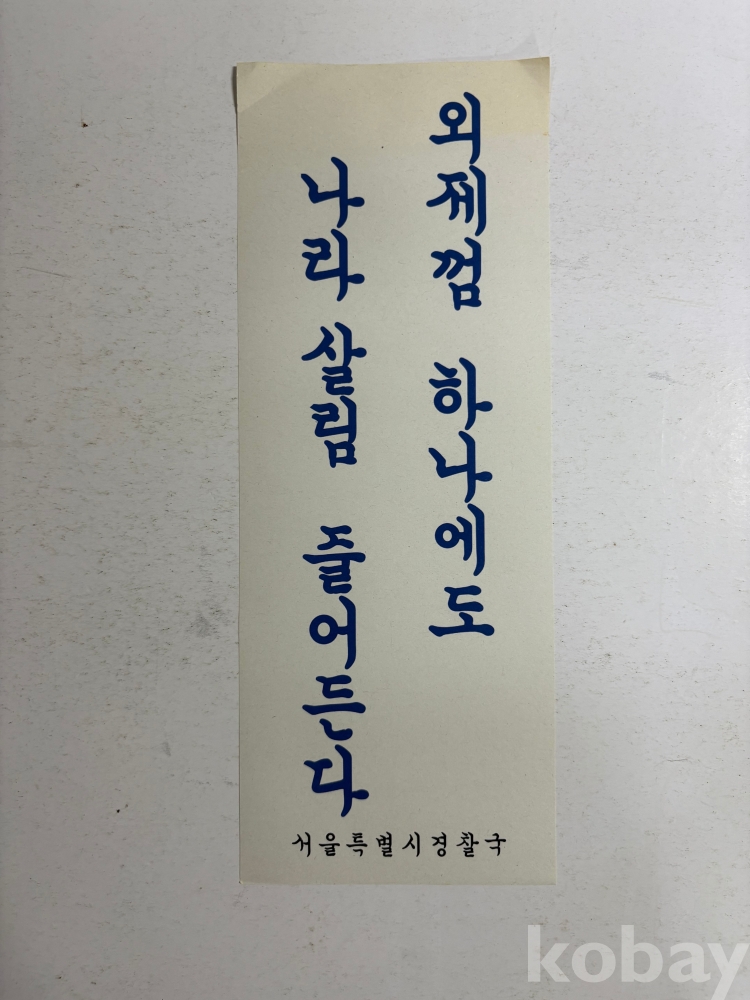 외제껌 하나에도
나라 살림 줄어든다
서울특별시경찰국
kobay